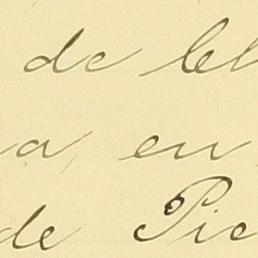 de lel
a, en
de Pie